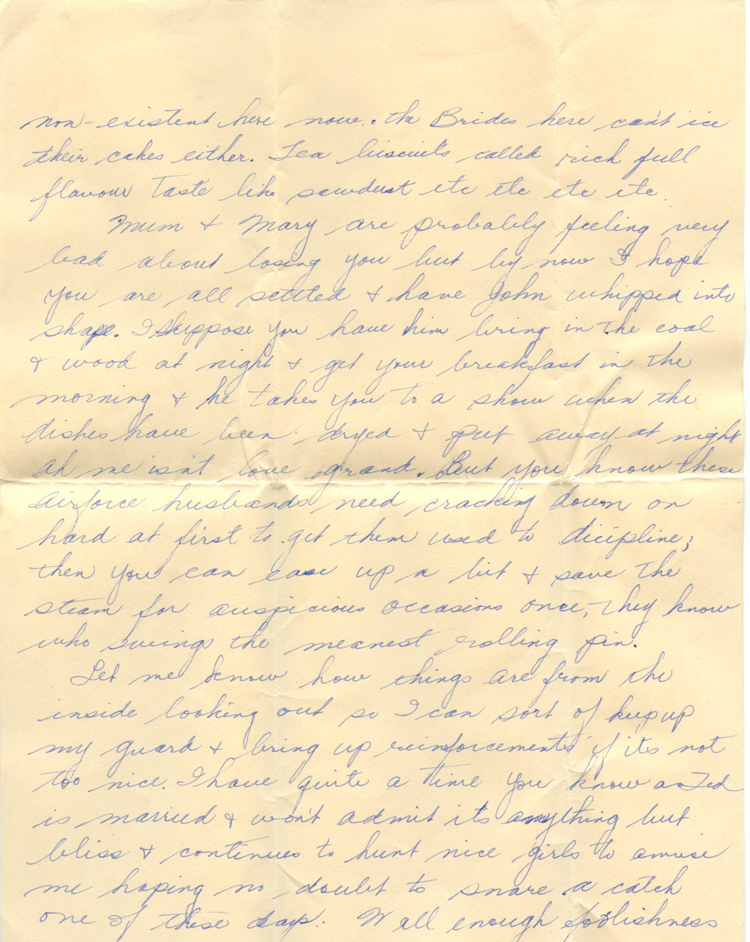 non-existent here now. the Brides here can't ice
their cakes either. Tea biscuits called rich full
flavour Taste like sawdust etc etc etc etc.
Mum & Mary are probably feeling very
bad about losing you but by now I hope
you are all settled & have John whipped into
shape. I suppose you have him bring in the coal
& wood at night & get your breakfast in the
morning & he takes you to a show when the
dishes have been dryed & put away at night
ah me isn't love grand. But you know these
airforce husbands need cracking down on
hard at first to get them used to dicipline,
then you can ease up a bit & save the
steam for auspicious occasions once, they know
who swings the meanest rolling pin.
Let me know how things are from the
inside looking out so I can sort of keep up
my guard & bring up reinforcements if its not
too nice. I have quite a time you know as Ted
is married & won't admit its anything but
bliss & continues to hunt nice girls to amuse
me hoping no doubt to snare a catch
one of these days. Well enough foolishness